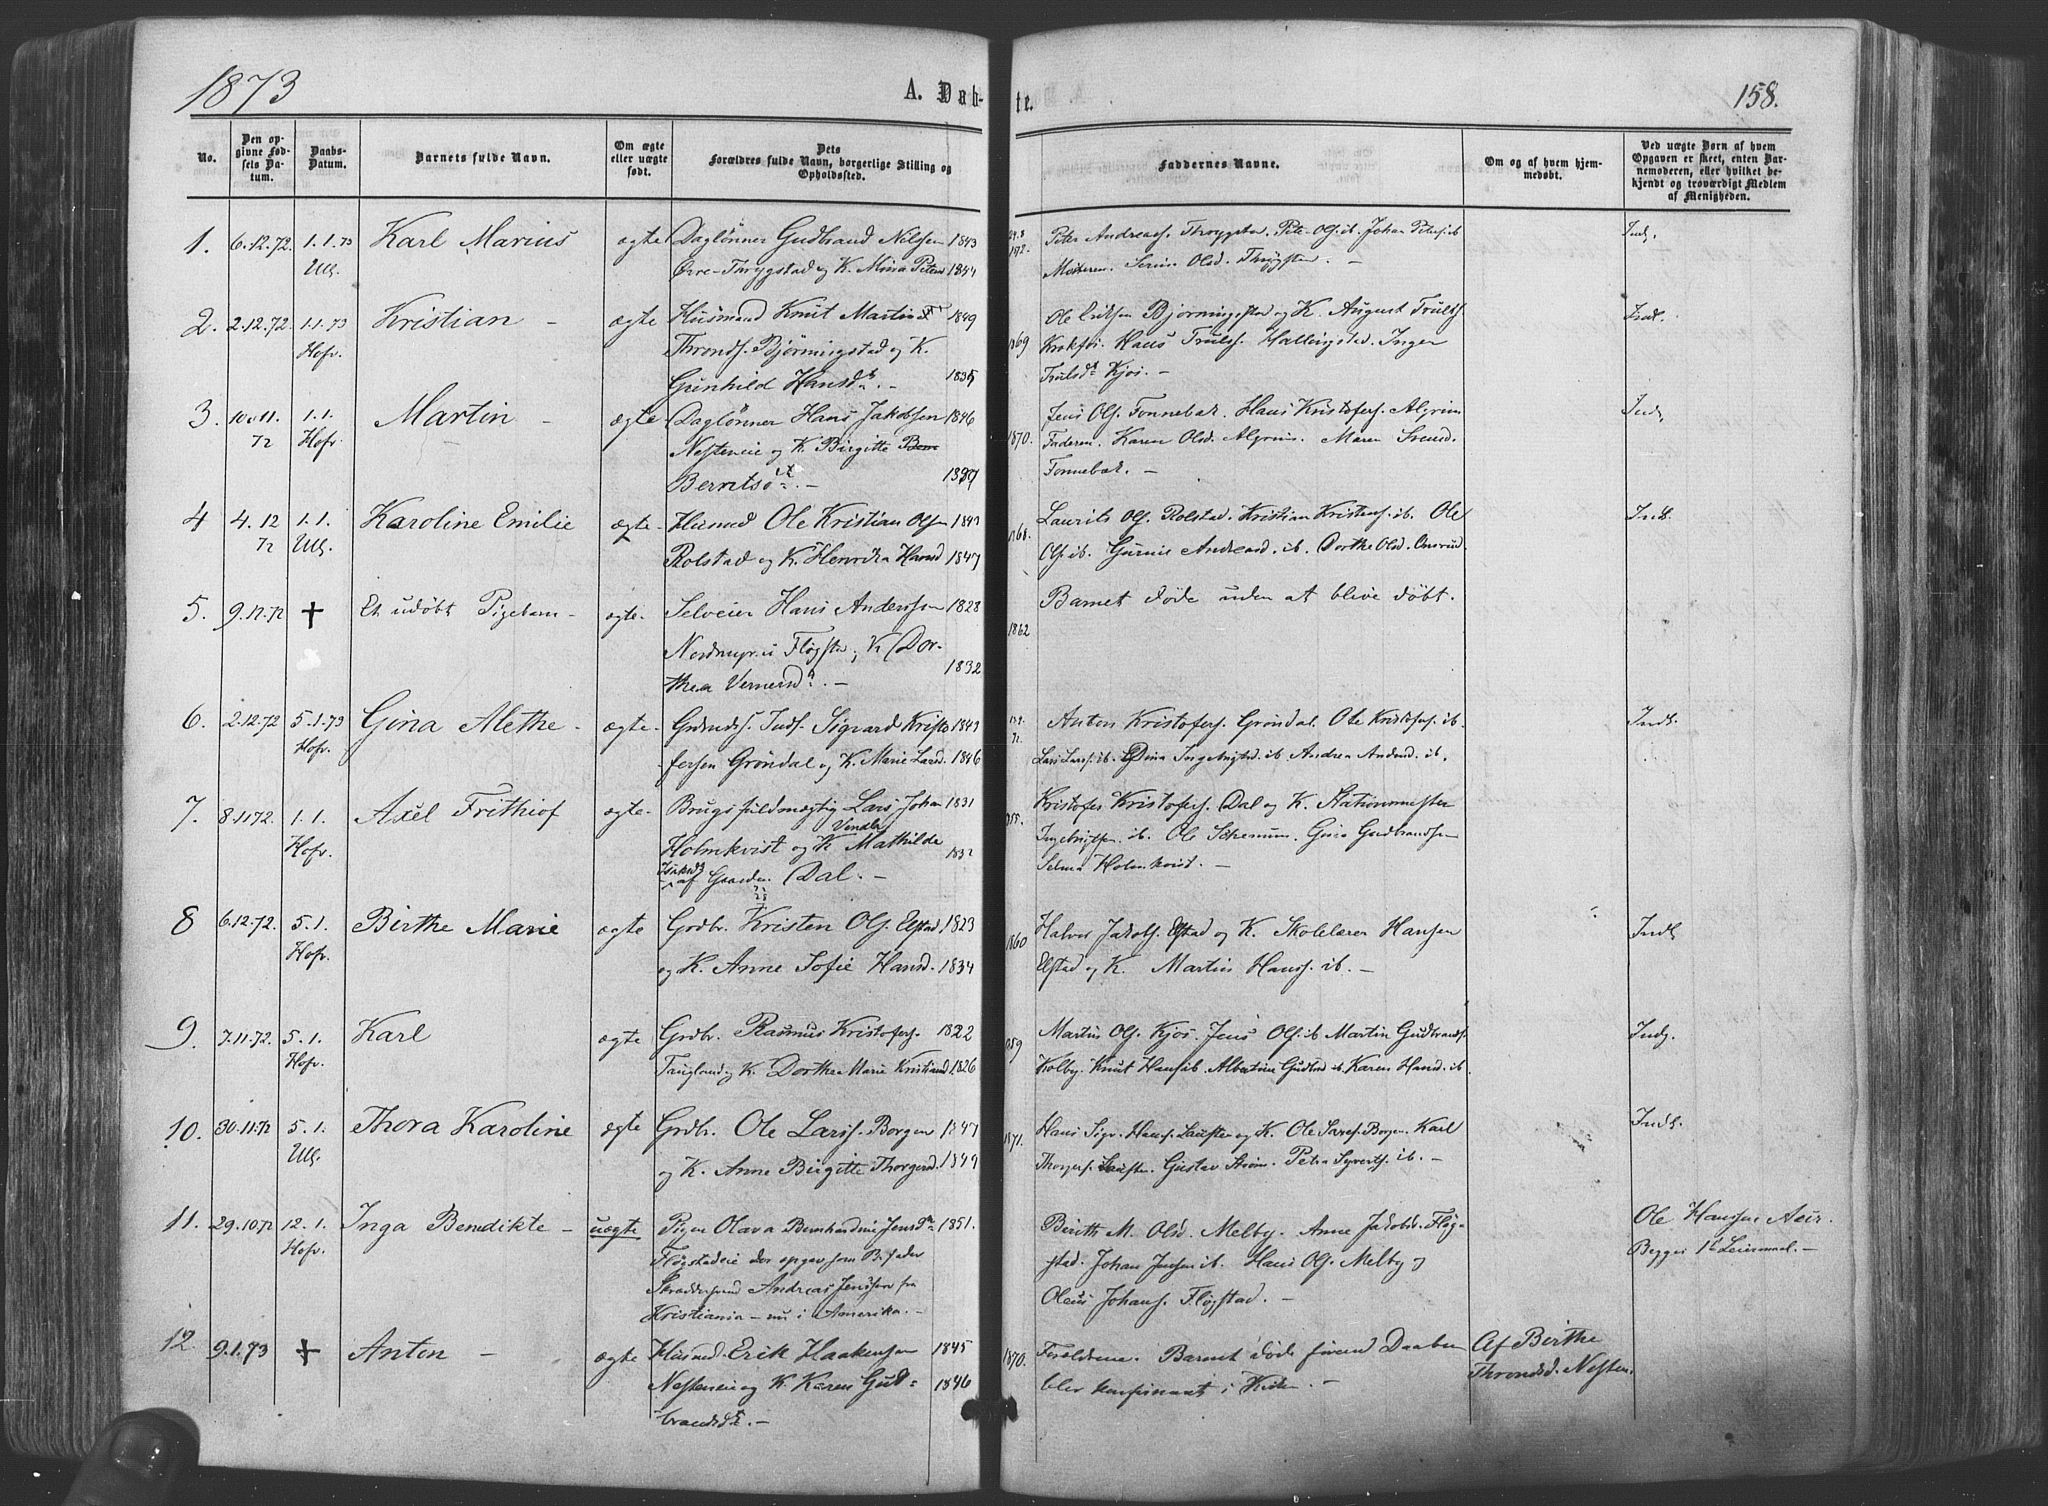 1873
A. Døb-
te.
158.
No.
Den op-
givne Fød-
sels Da-
tum.
Daabs-
Datum.
Barnets fulde Navn.
Om ægte
eller uægte
født.
Dets
Forældres fulde Navn, borgerlige Stilling og
Opholdssted.
Faddernes Navne.
Om og af hvem hjem-
medøbt.
Ved uægte Børn af hvem
Opgaven er skeet, enten Bar-
nemoderen, eller hvilket be-
kjendt og troværdigt Medlem
af Menigheden.
1. 6.12.72. 1.1.73 Karl Marius ægte Daglønner Gudbrand Nilsen 1843
Ull. Øvre-Thrygstad og K. Mina Peters 1844
Peter Andreass. Thrygstad. Ole Johan Peters. ib
Moderen. Olsd. Thrygstad. —
2. 2.12.72. 1.1.73 Kristian — ægte Husmand Knut Martin 1849
Hofv. Thronds. Bjørmingstad og K.
Gunhild Hansd. — 1835
Ole Eriksen Bjørmingstad og K. August Truls.
1869 Krokfos. Hans Truls. Hallingstad. Inger
Trulsd. Kjos. —
3. 10.11. 1.1. Martin — ægte Daglønner Hans Jakobsen 1846
72 Hofv. Nesteneie og K. Birgitte
Berntsd. —
Jens Ols. Tonnebæk. Hans Kristofers. Algrim
1870. Faderen. Karen Olsd. Algrim. Maren Svensd.
Tonnebæk. —
4 4.12 1.1. Karoline Emilie ægte Husmd Ole Kristian Ols. 1843
72 Ull. Rolstad og K. Henrika Hansd 1847
Laurits Ols. Rolstad. Kristian Kristens. ib. Ole
1868. Ols. ib. Gurine Andreasd. ib. Dorthe Olsd. Onsrud.
5. 9.12.72 + Et udøbt Pigebarn — ægte. Selveier Hans Anderssen 1828
i Fløgstad, K. Dor-
thea Vernersd. — 1832
Barnet døde uden at blive døbt.
1862
6. 2.12.72 5.1.73 Gina Alethe — ægte Grdmds. Inds. Sigvard Kristo 1843
Hofv. fersen Grøndal og K. Marie Larsd. 1846
Anton Kristofers. Grøndal. Ole Kristofers. ib.
Lars Larss. ib. Dina Ingebrigtsd. ib. Andrea Andersd. ib.
7. 8.11.72. 1.1. Axel Frithiof ægte. Brugsfuldmægtig Lars Johan 1831
Hofv. Holmkvist og K. Mathilde
af Gaarden Dal. —
Kristofer Kristofers. Dal og K. Stationmester
Ingebrigtsen ib. Ole Gina Gudbrandsen
Selma Holmkvist. —
8 6.12.72. 5.1. Birthe Marie ægte Grdbr. Kristen Ols. Elstad, 1823
Hofv. og K. Anne Sofie Hansd. 1834
Halvor Jakobs. Elstad og K. Skolelærer Hansen
1860 Elstad og K. Martin Hanss. ib. —
9. 7.11.72. 5.1. Karl ægte Grdbr. Rasmus Kristofers. 1822
Hofv. og K. Dorthea Marie Kristiansd. 1826
Martin Ols. Kjos. Jens Ols. ib Martin Gudbrands.
Kolby. Knut Hans. ib. Albertine ib. Karen Hansd. ib
10. 30.11.72 5.1. Thora Karoline ægte Grdbr. Ole Larss. Borgen 1847
Ull. og K. Anne Birgitte Thorgersd. 1849
Hans Sigv. Hanss. og K. Ole Larss. Borgen. Karl
1871. Thorgers. Gustav Strøm. Petra Syverts. ib. —
11. 29.10.72 12.1. Inga Benedikte — uægte Pigen Olava Bernhardine Jensd. 1851.
Hofv. Fløgstadeie der opgav som B.fader
Skræddersvend Andreas Jenssen fra
Kristiania — nu i Amerika. —
Berith M. Olsd. Melby. Anne Jakobsd. Fløg-
stad. Johan Jenssen ib. Hans Ols. Melby og
Oleus Johans. Fløgstad. —
Ole Hanssen
Begges 1ste Leiermaal. —
12. 9.1.73 + Anton — ægte Husmd. Erik Haakensen 1845
Nesteneie og K. Karen Gud- 1846
brandsd. —
1870. Forældrene. Barnet døde førend Daaben
blev konfirmeret i Kirken. —
Af Birthe
Throndsd. Nesten.